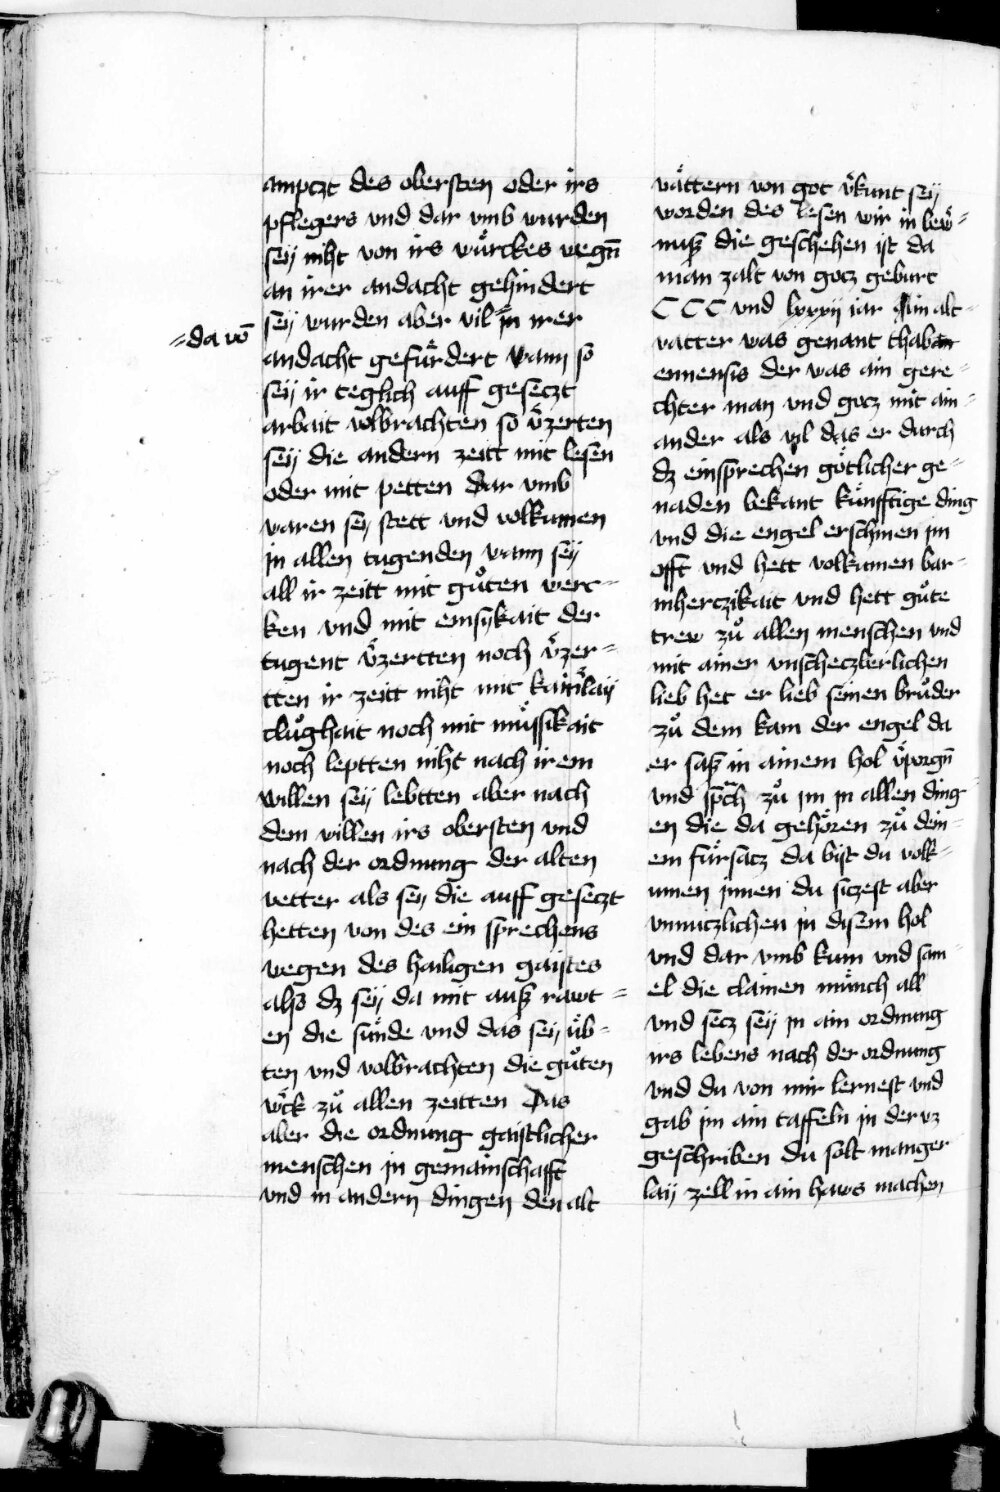 amptzt des obersten oder irs
pflegers vnd dar vmb wurden
seÿ niht von irs wuͤrckes wegn̄
an irer andacht gehindert
=da vō
seÿ wurden aber vil = in irer
andacht gefuͤrdert wann so
seÿ ir teglich auff gesetzt
arbait volbrachten so v̈zerten
seÿ die andern zeitt mit lesen
oder mit petten Dar vmb
waren seÿ stett vnd volkumen
jn allen tugenden wann seÿ
all ir zeitt mit guͦten werc-
ken vnd mit emsykait der
tugent v̈zertten noch v̈zer=
tten ir zeitt niht mit kainͤrlaÿ
cluͦghait noch mit muͤssikait
noch leptten niht nach irem
willen seÿ lebtten aber nach
dem willen irs obersten vnd
nach der ordnung der alten
vetter als seÿ die auff gesetzt
hetten von des ein sprechens
wegen des hailigen gaistes
alss dz seÿ da mit ausz rawt=
en die suͤnde vnd das seÿ uͤb-
ten vnd volbrachten die guͦten
wͤck zuͦ allen zeitten Das
aber die ordnung gaistlicher
menschen jn gemainschafft
vnd in andern dingen den alt
vaͤttern von got v̈kunt seÿ
worden des lesen wir in lew̄=
nusz die geschehen ist da
man zalt von gotz geburt
C C C vnd lxxxij iar Ain alt-
vatter was genant thaban
ennensis der was ain gere-
chter man vnd gotz mit ain-
ander als vil das er durch
dz einsprechen goͤtlicher ge-
naden bekant kuͤnfftige ding
vnd die engel erschinen jm
offt vnd hett volkumen bar-
mhertzikait vnd hett guͦte
trew zuͦ allen menschen vnd
mit ainer vnschetzberlichen
lieb het er lieb seinen bruͦder
zuͦ dem kam der engel da
er sasz in ainem hol v̈porgn̄
vnd sp̄ch zuͦ jm jn allen ding-
en die da gehoͤren zuͦ dein-
em fuͤrsatz da bist du volk-
umen jnnen du sitzest aber
vnnutzlichen jn disem hol
vnd dar vmb kum vnd sam-
el die clainen muͤnch all
vnd setz seÿ jn ain ordnung
irs lebens nach der ordnung
vnd du von mir lernest vnd
gab jm ain taffeln jn der vz
geschriben du solt manger
laÿ zell in ain haws machen